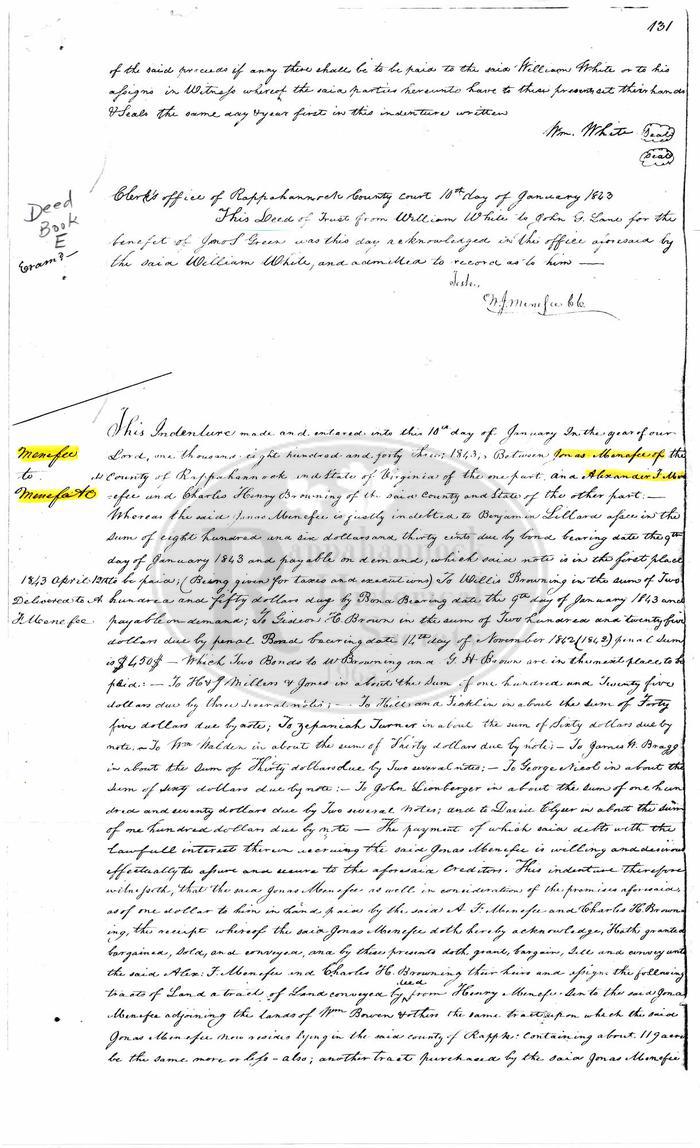 131
of the said proceeds if anny there shall be to be paid to the said William White or to his
assigns in Witness whereof the said parties hereunto have to these presents set their hands
& Seals the same day & year first in this indenture written
Wm. White Seal
Seal
Deed
Book
E
Clerk's office of Rappahannock County court 10th day of January 1843
This Deed of Trust from William White to John G. Lane for the
benefit of Jno S Green was this day acknowledged in the office aforesaid by
the said William White, and admitted to record as to him —
Teste,
W. J. Menefee Clk
This Indenture made and entered into this 10th day of January In the year of our
Menefee
to
Menefee &c
Lord, one thousand eight hundred and forty three; 1843, Between Jonas Menefee of the
County of Rappahannock and State of Virginia of the one part, and Alexander F. Men
efee and Charles Henry Browning of the said County and State of the other part. —
Whereas the said Jonas Menefee is justly indebted to Benjamin Lillard in the
sum of eight hundred and six dollars and thirty cents due by bond bearing date the 9th
day of January 1843 and payable on demand, which said note is in the first place
1843 April 13th
Delivered to A
F Menefee
to be paid; (Being given for taxes and executions) To Willis Browning in the sum of Two
hundred and fifty dollars due by Bond Bearing date the 9th day of January 1843 and
payable on demand; To Gideon H Brown in the sum of Two hundred and twenty five
dollars due by penal Bond bearing date 14th day of November 1842 (1842) penal Sum
is $450$ — Which Two Bonds to W Browning and G. H Brown are in the next place to be
paid: — To H & J Millers & Jones in about the Sum of one hundred and Twenty five
dollars due by three several notes; — To Hill and Ficklin in about the sum of Forty
five dollars due by note; To Zepaniah Turner in about the sum of Sixty dollars due by
note. — To Wm Walden in about the sum of Thirty dollars due by note; — To James W. Bragg
in about the Sum of Thirty dollars due by Two several notes; — To George Nicol in about the
Sum of sixty dollars due by note: — To John Lionberger in about the sum of one hun
dred and seventy dollars due by Two several notes; and to David Clyser in about the sum
of one hundred dollars due by note — The payment of which said debts with the
lawfull interest thereon accruing the said Jonas Menefee is willing and desirous
effectually to assure and secure to the aforesaid Creditors. This indenture therefore
witnesseth, that the said Jonas Menefee as well in consideration of the premises aforesaid,
as of one dollar to him in hand paid by the said A. F Menefee and Charles H. Brown
ing, the receipt whereof the said Jonas Menefee doth hereby acknowledge, Hath granted
bargained, Sold, and conveyed, and by these presents doth grant, bargain, Sell and convey unto
the said Alex: F. Menefee and Charles H. Browning their heirs and assigns the following
tracts of Land a tract of Land conveyed by deed from Henry Menefee Senr to the said Jonas
Menefee adjoining the lands of Wm Bowen & others the same tract upon which the said
Jonas Menefee now resides lying in the said county of Rappk: Containing about 119 acres
be the same more or less — also; another tract purchased by the said Jonas Menefee